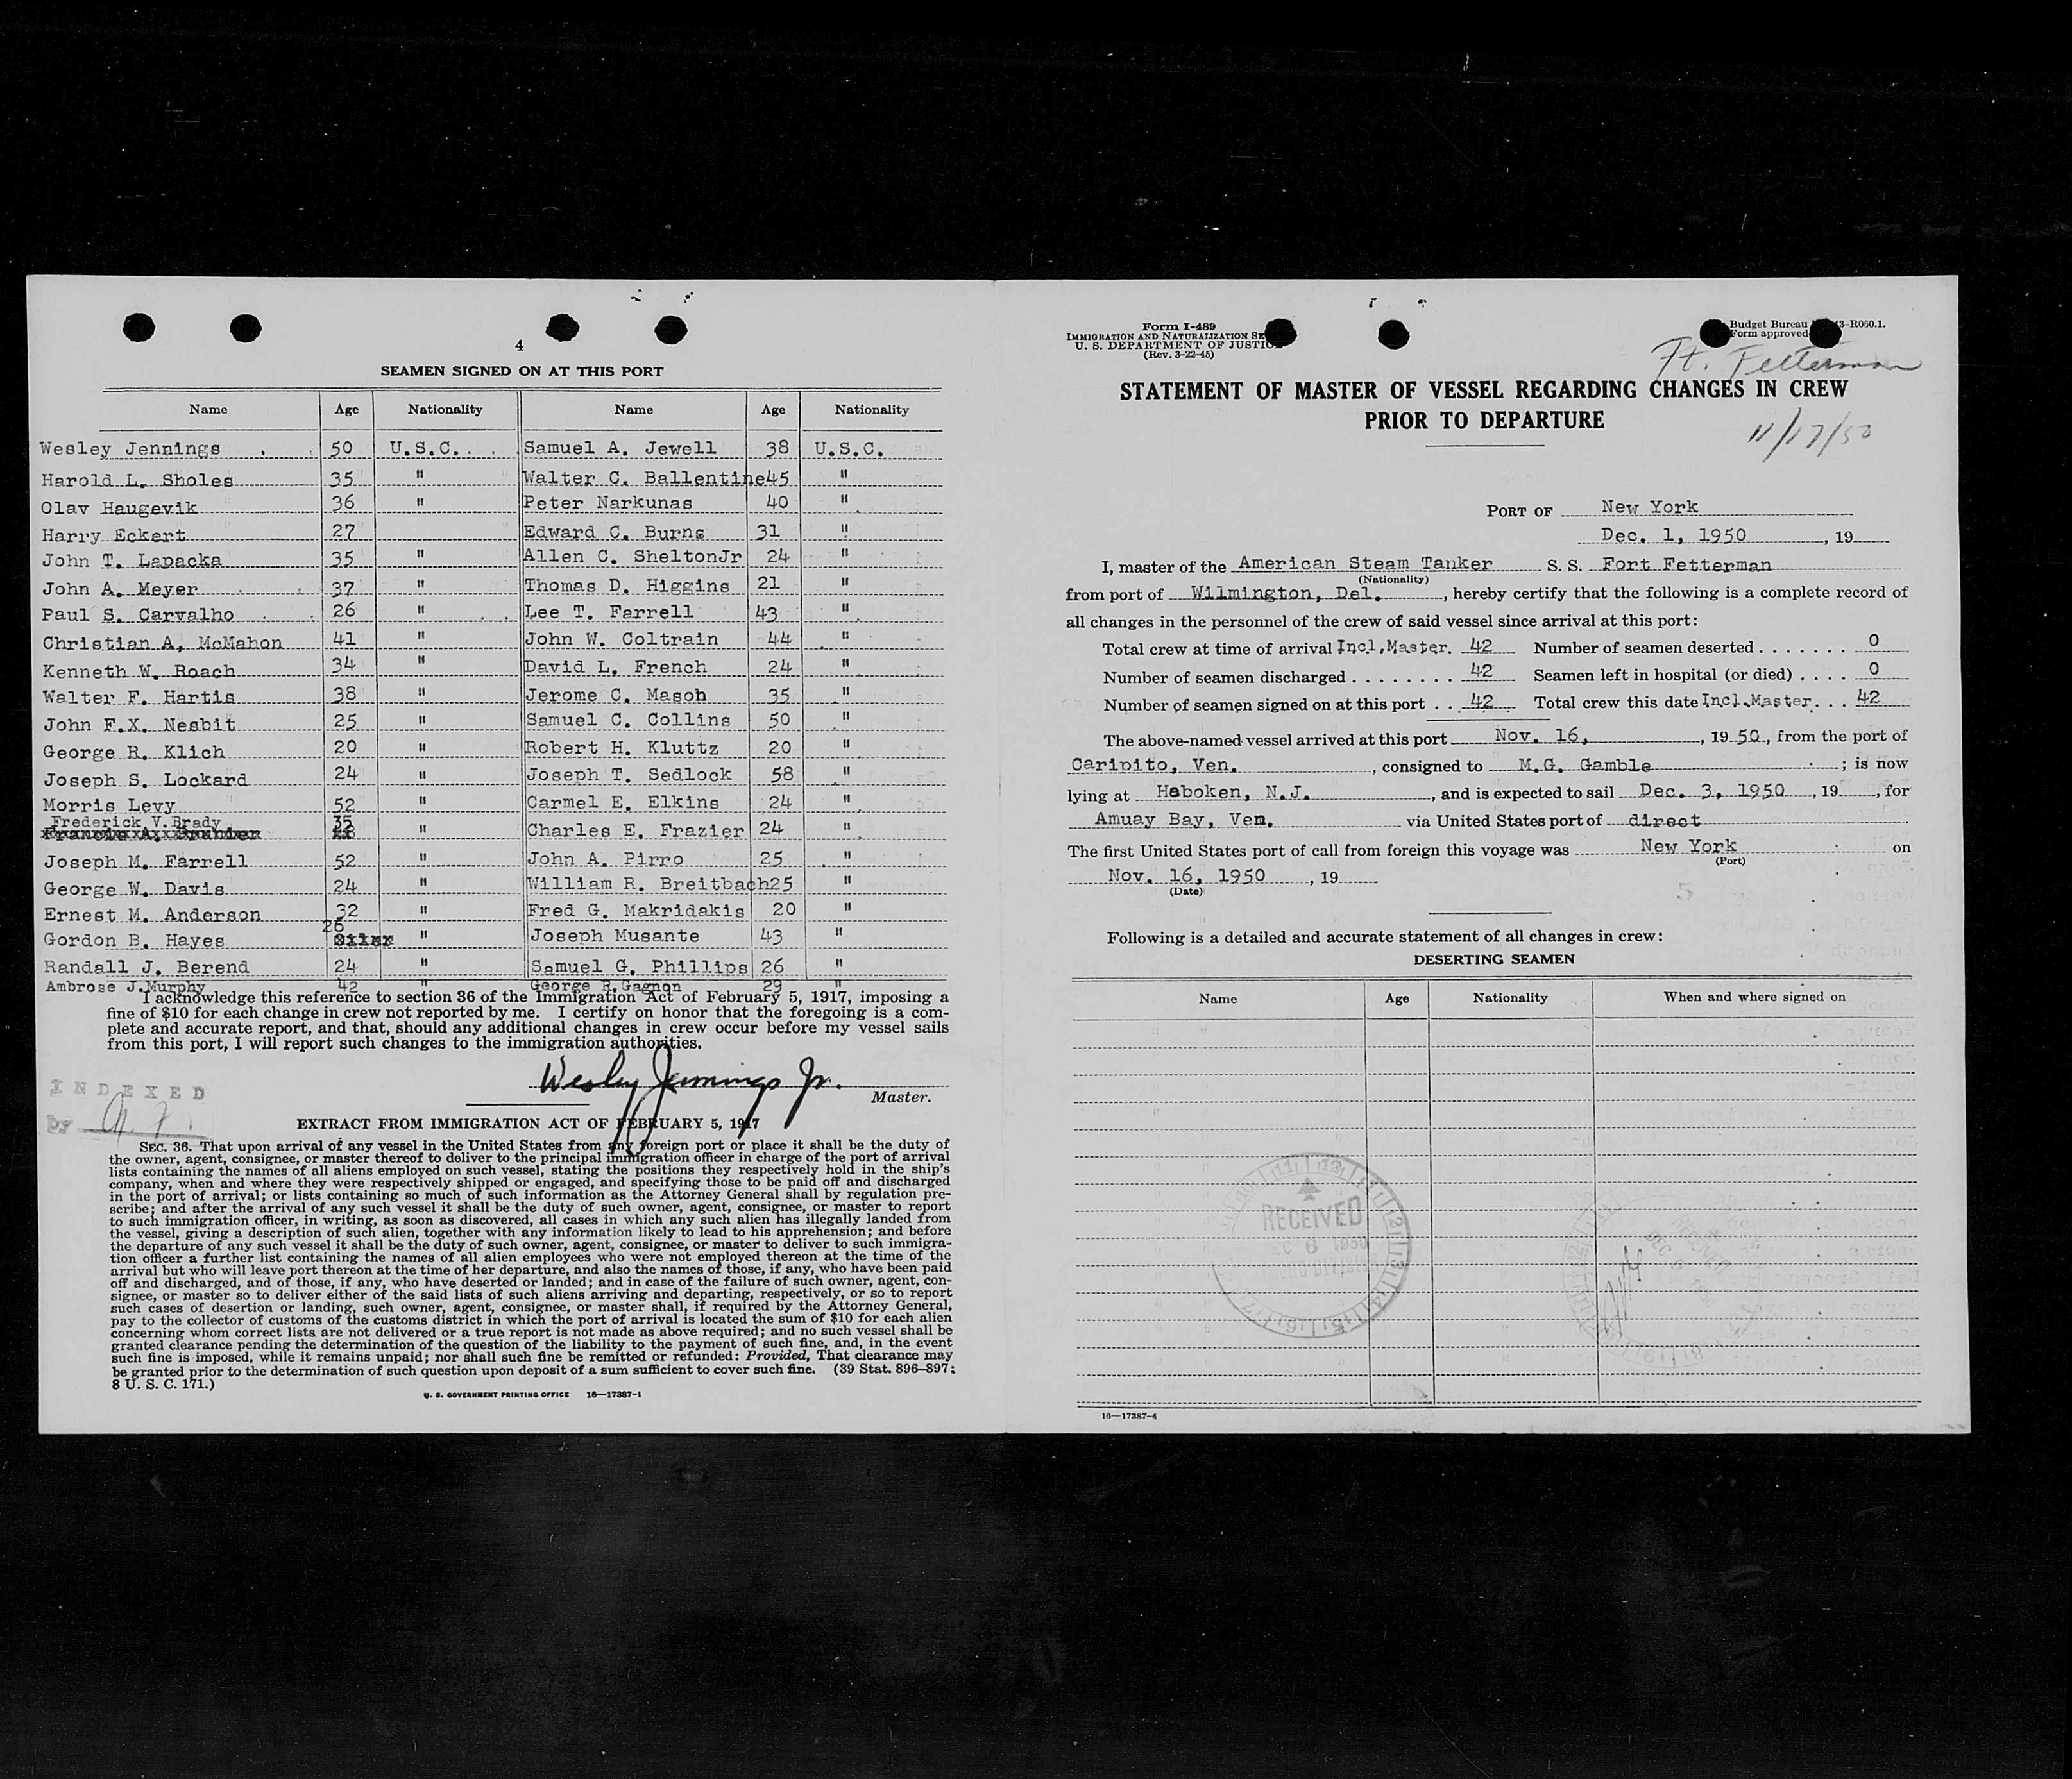 4
SEAMEN SIGNED ON AT THIS PORT
Name Age Nationality Name Age Nationality
Wesley Jennings 50 U.S.C. Samuel A. Jewell 38 U.S.C.
Harold L. Sholes 35 " Walter C. Ballentine 45 "
Olav Haugevik 36 " Peter Narkunas 40 "
Harry Eckert 27 Edward C. Burns 31 "
John T. Lapacka 35 " Allen C. SheltonJr 24 "
John A. Meyer 37 " Thomas D. Higgins 21 "
Paul S. Carvalho 26 " Lee T. Farrell 43 "
Christian A, McMahon 41 " John W. Coltrain 44 "
Kenneth W. Roach 34 " David L. French 24 "
Walter F. Hartis 38 " Jerome C. Mason 35 "
John F.X. Nesbit 25 " Samuel C. Collins 50 "
George R. Klich 20 " Robert H. Kluttz 20 "
Joseph S. Lockard 24 " Joseph T. Sedlock 58 "
Morris Levy 52 " Carmel E. Elkins 24 "
Frederick V. Brady 35 " Charles E. Frazier 24 "
Joseph M. Farrell 52 " John A. Pirro 25 "
George W. Davis 24 " William R. Breitbach 25 "
Ernest M. Anderson 32 " Fred G. Makridakis 20 "
Gordon B. Hayes 26 " Joseph Musante 43 "
Randall J. Berend 24 " Samuel G. Phillips 26 "
Ambrose J.Murphy 42 " George R.Gagnon 29 "
I acknowledge this reference to section 36 of the Immigration Act of February 5, 1917, imposing a
fine of $10 for each change in crew not reported by me. I certify on honor that the foregoing is a com-
plete and accurate report, and that, should any additional changes in crew occur before my vessel sails
from this port, I will report such changes to the immigration authorities.
Wesley Jennings Jr.
Master.
INDEXED
by
EXTRACT FROM IMMIGRATION ACT OF FEBRUARY 5, 1917
SEC. 36. That upon arrival of any vessel in the United States from any foreign port or place it shall be the duty of
the owner, agent, consignee, or master thereof to deliver to the principal immigration officer in charge of the port of arrival
lists containing the names of all aliens employed on such vessel, stating the positions they respectively hold in the ship's
company, when and where they were respectively shipped or engaged, and specifying those to be paid off and discharged
in the port of arrival; or lists containing so much of such information as the Attorney General shall by regulation pre-
scribe; and after the arrival of any such vessel it shall be the duty of such owner, agent, consignee, or master to report
to such immigration officer, in writing, as soon as discovered, all cases in which any such alien has illegally landed from
the vessel, giving a description of such alien, together with any information likely to lead to his apprehension; and before
the departure of any such vessel it shall be the duty of such owner, agent, consignee, or master to deliver to such immigra-
tion officer a further list containing the names of all alien employees who were not employed thereon at the time of the
arrival but who will leave port thereon at the time of her departure, and also the names of those, if any, who have been paid
off and discharged, and of those, if any, who have deserted or landed; and in case of the failure of such owner, agent, con-
signee, or master so to deliver either of the said lists of such aliens arriving and departing, respectively, or so to report
such cases of desertion or landing, such owner, agent, consignee, or master shall, if required by the Attorney General,
pay to the collector of customs of the customs district in which the port of arrival is located the sum of $10 for each alien
concerning whom correct lists are not delivered or a true report is not made as above required; and no such vessel shall be
granted clearance pending the determination of the question of the liability to the payment of such fine, and, in the event
such fine is imposed, while it remains unpaid; nor shall such fine be remitted or refunded: Provided, That clearance may
be granted prior to the determination of such question upon deposit of a sum sufficient to cover such fine. (39 Stat. 896-897;
8 U. S. C. 171.)
U. S. GOVERNMENT PRINTING OFFICE 16—17387-1
Form I-489
IMMIGRATION AND NATURALIZATION
U. S. DEPARTMENT OF JUSTICE
(Rev. 3-22-45)
Budget Bureau 3-R060.1.
Form approved
Ft. Fetterman
STATEMENT OF MASTER OF VESSEL REGARDING CHANGES IN CREW
PRIOR TO DEPARTURE
11/17/50
PORT OF New York
Dec. 1, 1950, 19
I, master of the American Steam Tanker S. S. Fort Fetterman
(Nationality)
from port of Wilmington, Del., hereby certify that the following is a complete record of
all changes in the personnel of the crew of said vessel since arrival at this port:
Total crew at time of arrival Incl.Master. 42 Number of seamen deserted . . . . . . . 0
Number of seamen discharged . . . . . . . . 42 Seamen left in hospital (or died) . . . . 0
Number of seamen signed on at this port . . 42 Total crew this date Incl.Master. . . 42
The above-named vessel arrived at this port Nov. 16, , 1950, from the port of
Caripito, Ven. , consigned to M.G. Gamble ; is now
lying at Hoboken, N.J. , and is expected to sail Dec. 3, 1950 , 19 , for
Amuay Bay, Ven. via United States port of direct
The first United States port of call from foreign this voyage was New York on
(Port)
Nov. 16, 1950 , 19
(Date)
Following is a detailed and accurate statement of all changes in crew:
DESERTING SEAMEN
Name Age Nationality When and where signed on
RECEIVED
DEC 6 1950
RECEIVED
DEC 6 1950
16—17387-4